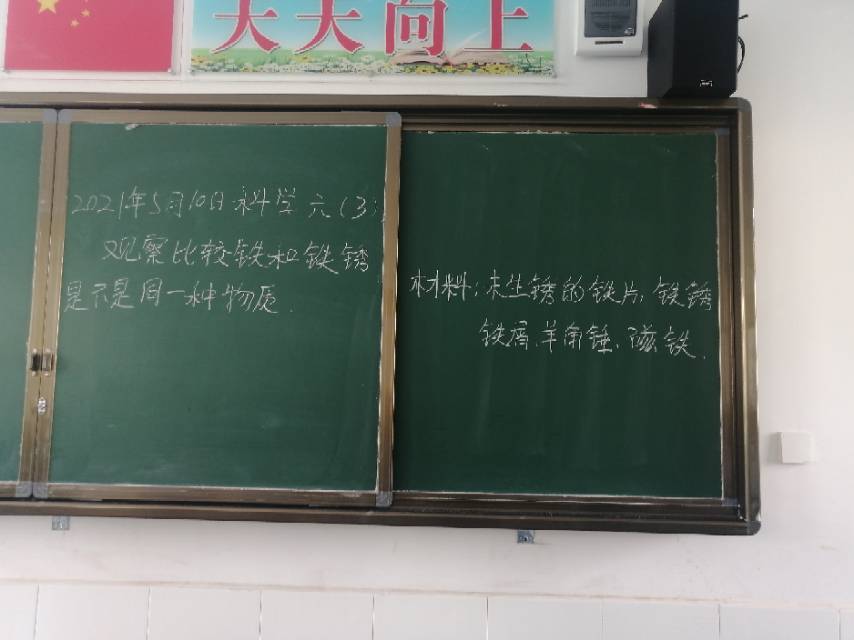 天天向上
2021年5月10日 科学 六(3)
观察比较铁和铁锈
是不是同一种物质.
材料:未生锈的铁片,铁锈
铁屑、羊角锤、磁铁.